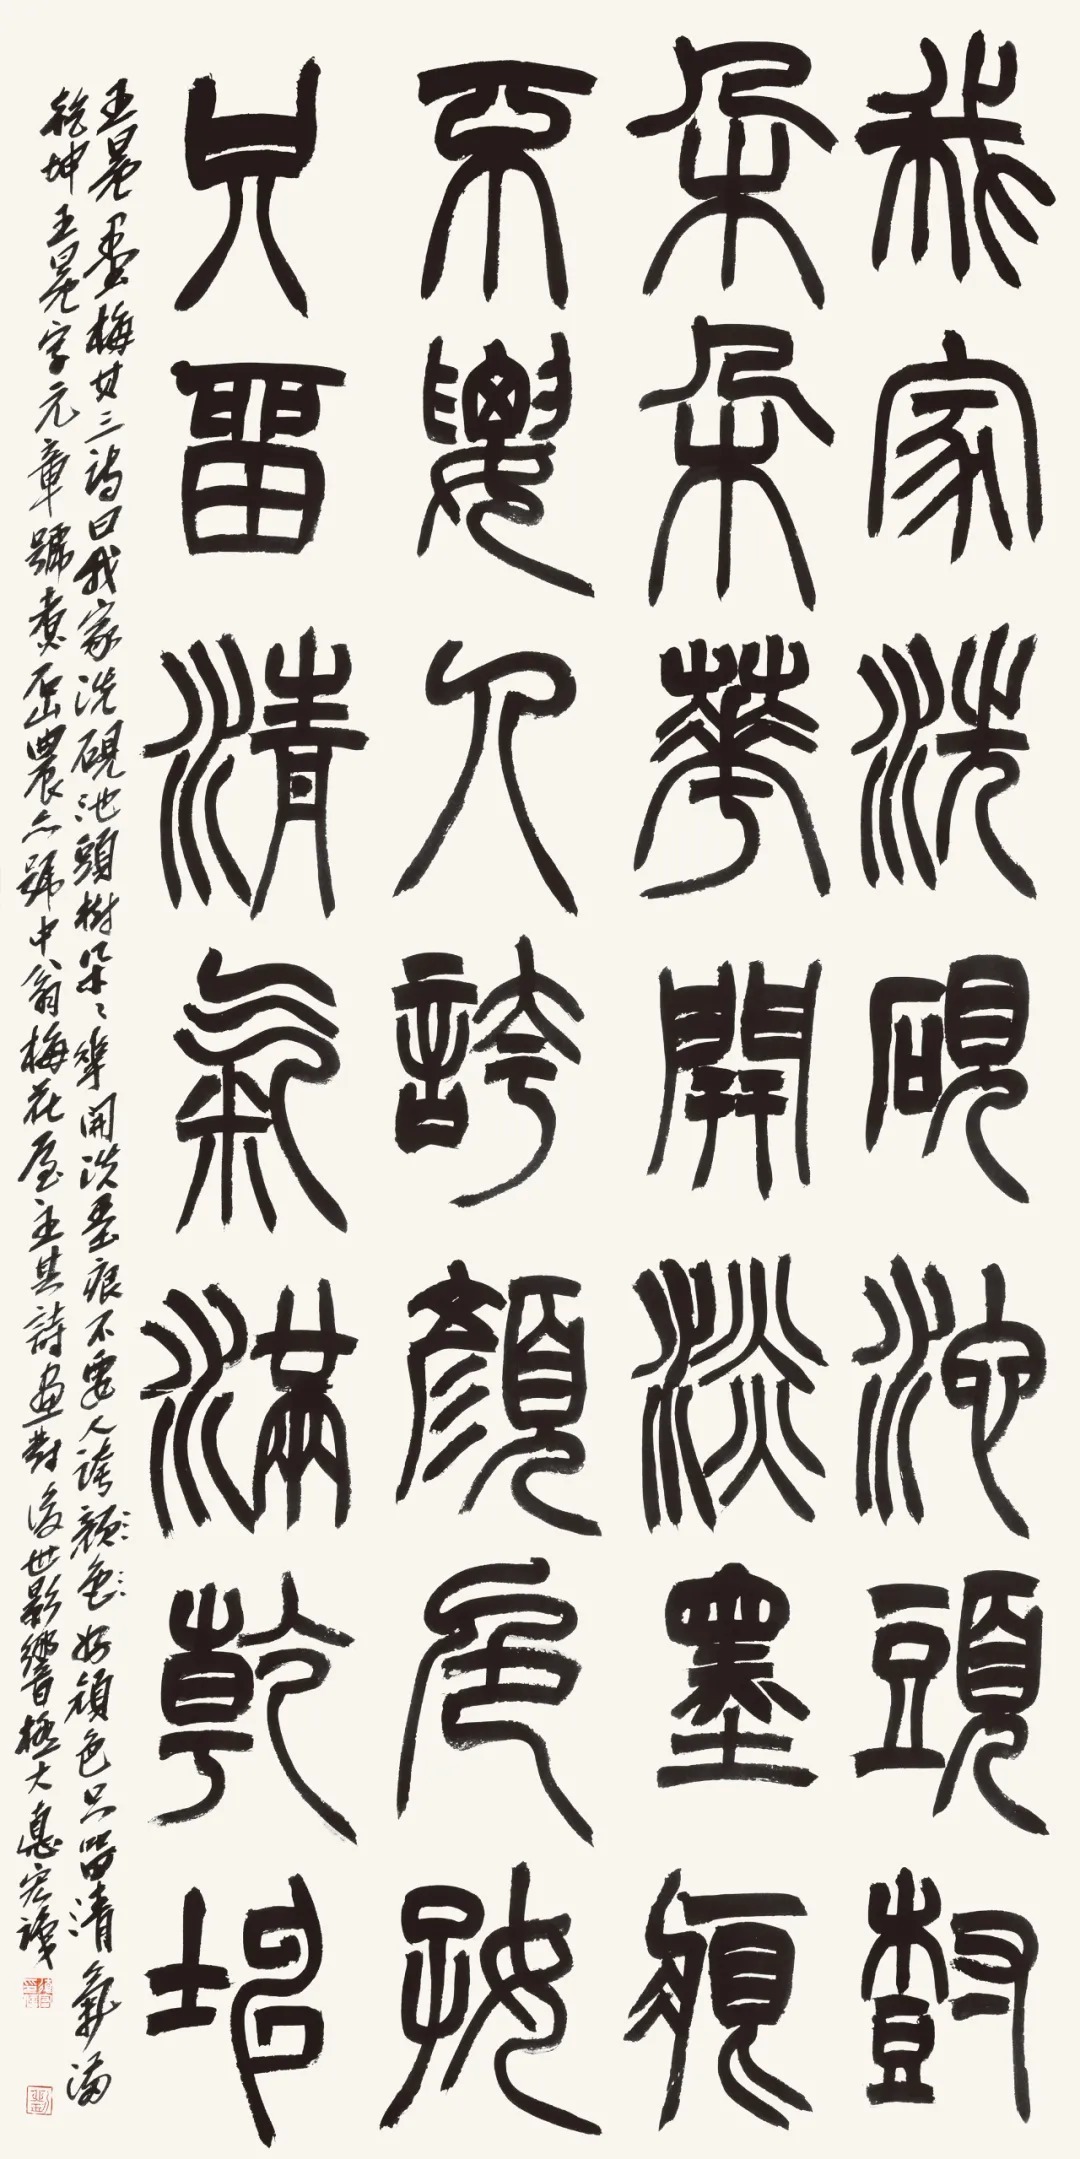 我家洗硯池頭樹
朵朵華開淡墨痕
不要人誇顏色好
只畱清氣滿乾坤
王冕墨梅其三詩曰我家洗硯池頭樹朵〻華開淡墨痕不要人誇顏色好顏色只畱清氣滿
乾坤王冕字元章號煮石山農亦號中翁梅花屋主其詩畫對後世影響極大